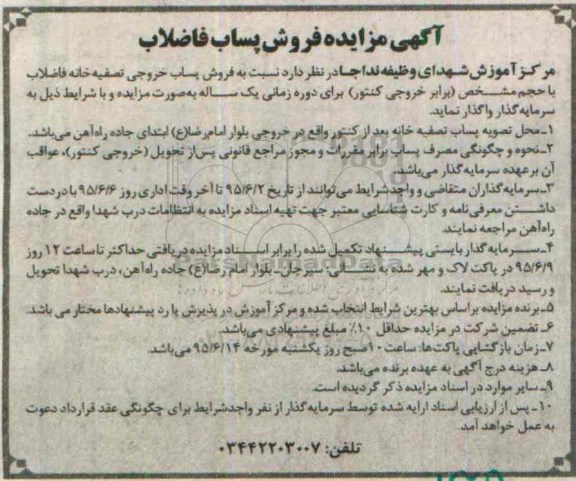 آگهی مزایده فروش پساب فاضلاب
مرکز آموزش شهدای وظیفه نداجا در نظر دارد نسبت به فروش پساب خروجی تصفیه خانه فاضلاب
با حجم مشخص (برابر خروجی کنتور) برای دوره زمانی یک ساله به‌صورت مزایده و با شرایط ذیل به
سرمایه گذار واگذار نماید.
۱ـ محل تصویه پساب تصفیه خانه بعد از کنتور واقع در خروجی بلوار امام‌رضا(ع) ابتدای جاده راه‌آهن می‌باشد.
۲ـ نحوه و چگونگی مصرف پساب برابر مقررات و مجوز مراجع قانونی پس از تحویل (خروجی کنتور)، عواقب
آن بر عهده سرمایه گذار می‌باشد.
۳ـ سرمایه گذاران متقاضی و واجدشرایط می‌توانند از تاریخ ۹۵/۶/۲ تا آخر وقت اداری روز ۹۵/۶/۶ با در دست
داشتن معرفی نامه و کارت شناسایی معتبر جهت تهیه اسناد مزایده به انتظامات درب شهدا واقع در جاده
راه‌آهن مراجعه نمایند.
۴ـ سرمایه گذار بایستی پیشنهاد تکمیل شده را برابر اسناد مزایده دریافتی حداکثر تا ساعت ۱۲ روز
۹۵/۶/۹ در پاکت لاک و مهر شده به نشانی: سیرجان ـ بلوار امام رضا(ع) جاده راه‌آهن، درب شهدا تحویل
و رسید دریافت نمایند.
۵ـ برنده مزایده بر اساس بهترین شرایط انتخاب شده و مرکز آموزش در پذیرش یا رد پیشنهادها مختار می باشد.
۶ـ تضمین شرکت در مزایده حداقل ۱۰٪ مبلغ پیشنهادی می‌باشد.
۷ـ زمان بازگشایی پاکت‌ها: ساعت ۱۰ صبح روز یکشنبه مورخه ۹۵/۶/۱۴ می‌باشد.
۸ـ هزینه درج آگهی به عهده برنده می‌باشد.
۹ـ سایر موارد در اسناد مزایده ذکر گردیده است.
۱۰ـ پس از ارزیابی اسناد ارایه شده توسط سرمایه گذار از نفر واجدشرایط برای چگونگی عقد قرارداد دعوت
به عمل خواهد آمد.
تلفن: ۰۳۴۴۲۲۰۳۰۰۷